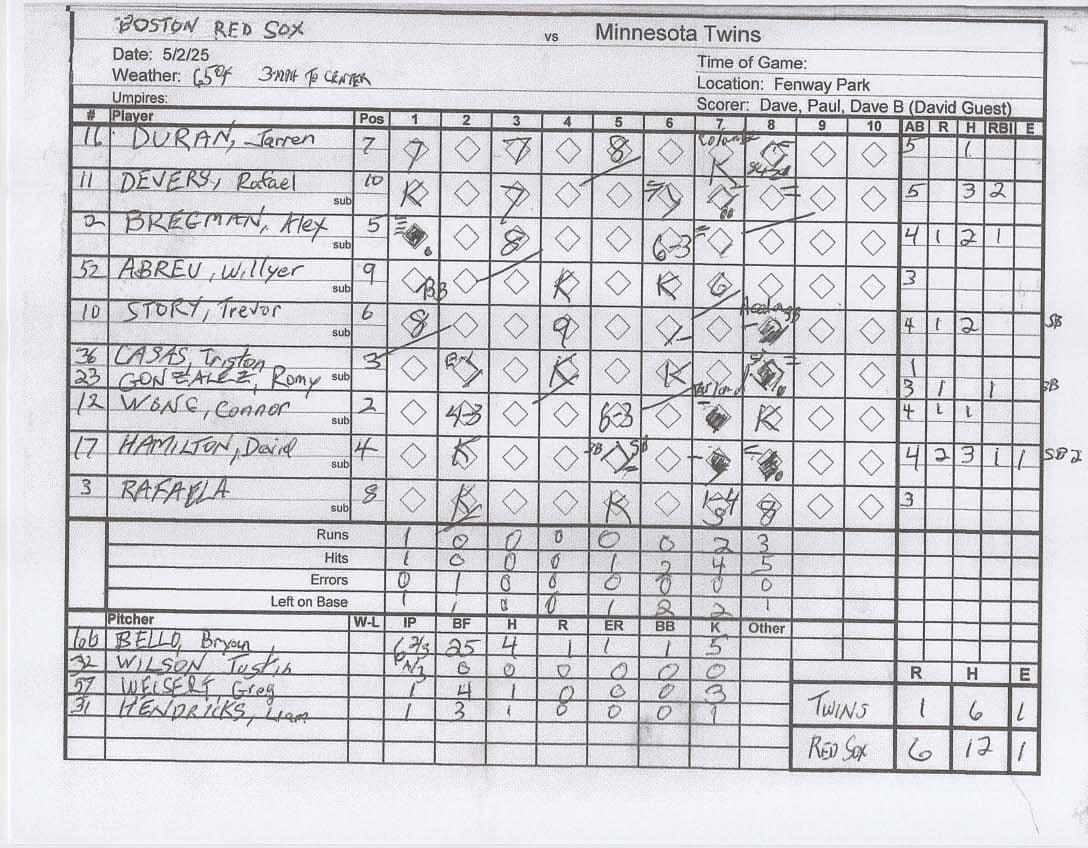 BOSTON RED SOX vs Minnesota Twins
Date: 5/2/25
Time of Game:
Weather: 65°F 3MPH TO CENTER
Location: Fenway Park
Umpires:
Scorer: Dave, Paul, Dave B (David Guest)
# Player Pos 1 2 3 4 5 6 7 8 9 10 AB R H RBI E
16 DURAN, Jarren 7 7 7 8 K 5 1
11 DEVERS, Rafael sub 10 K 7 7 5 3 2
2 BREGMAN, Alex sub 5 8 6-3 4 1 2 1
52 ABREU, Willyer sub 9 BB K K 6 3
10 STORY, Trevor sub 6 8 9 4 1 2 SB
36 CASAS, Triston 3 K K 1
23 GONZALEZ, Romy sub 3 1 1 3B
12 WONG, Connor sub 2 4-3 6-3 K 4 1 1
17 HAMILTON, David sub 4 K SB SB 4 2 3 1 1 SB 2
3 RAFAELA sub 8 K K 8 3
Runs 1 0 0 0 0 0 2 3
Hits 1 0 0 0 1 2 4 5
Errors 0 1 0 0 0 0 0 0
Left on Base 1 1 0 0 1 2 2 1
Pitcher W-L IP BF H R ER BB K Other
BELLO, Bryan 6 2/3 25 4 1 1 1 5
32 WILSON Justin 0 0 0 0 0 0
57 WEISERT, Greg 1 4 1 0 0 0 3
31 HENDRICKS, Liam 1 3 1 0 0 0 1
R H E
TWINS 1 6 1
RED SOX 6 12 1